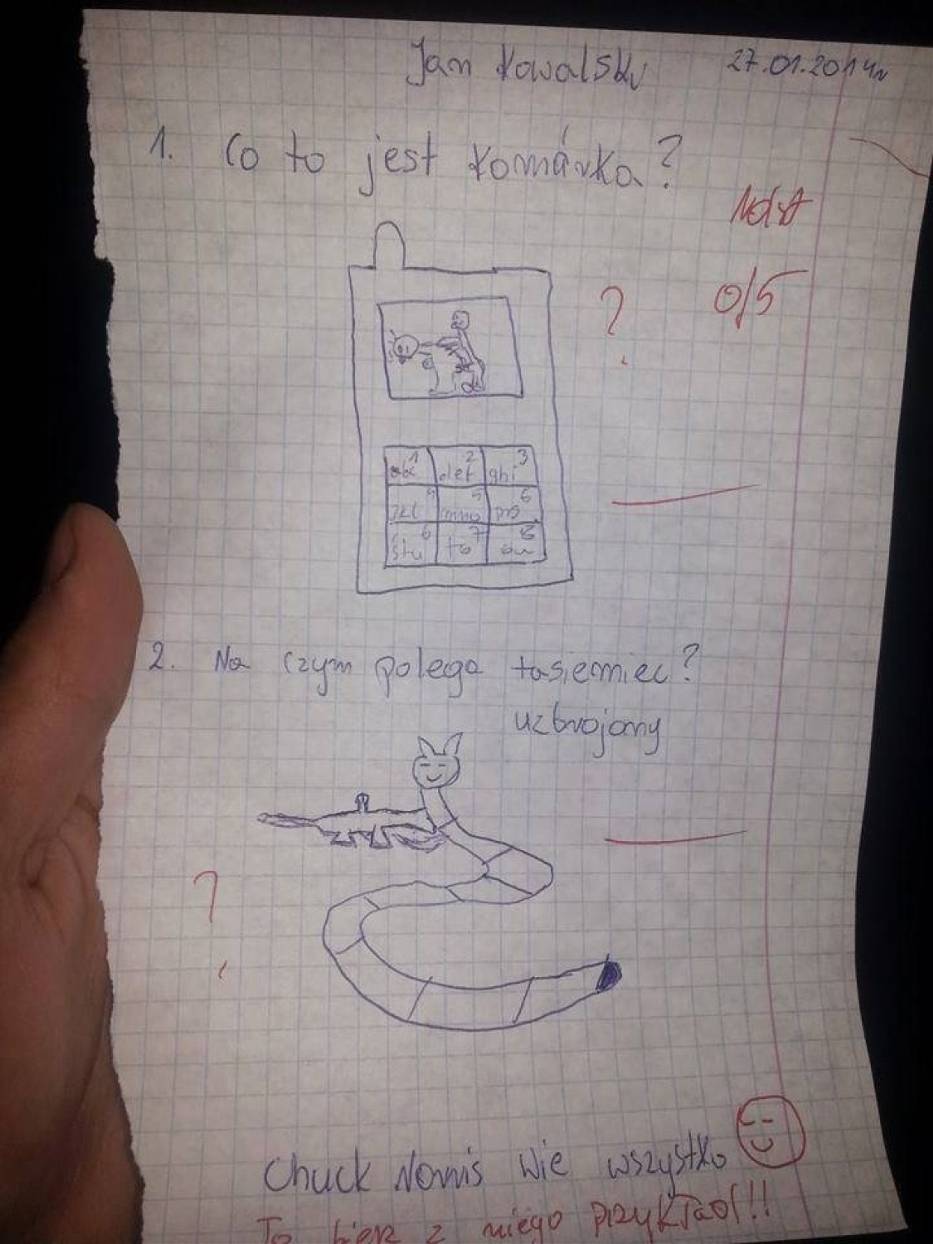 Jan Kowalski 27.01.2014r
1. Co to jest komórka?
Ndst
? 0/5
1 2 def 3 ghi
jkl 5 mno 6 prs
6 stu 7 8
2. Na czym polega tasiemiec?
uzbrojony
?
Chuck Norris wie wszystko
To bierz z niego przykład!!